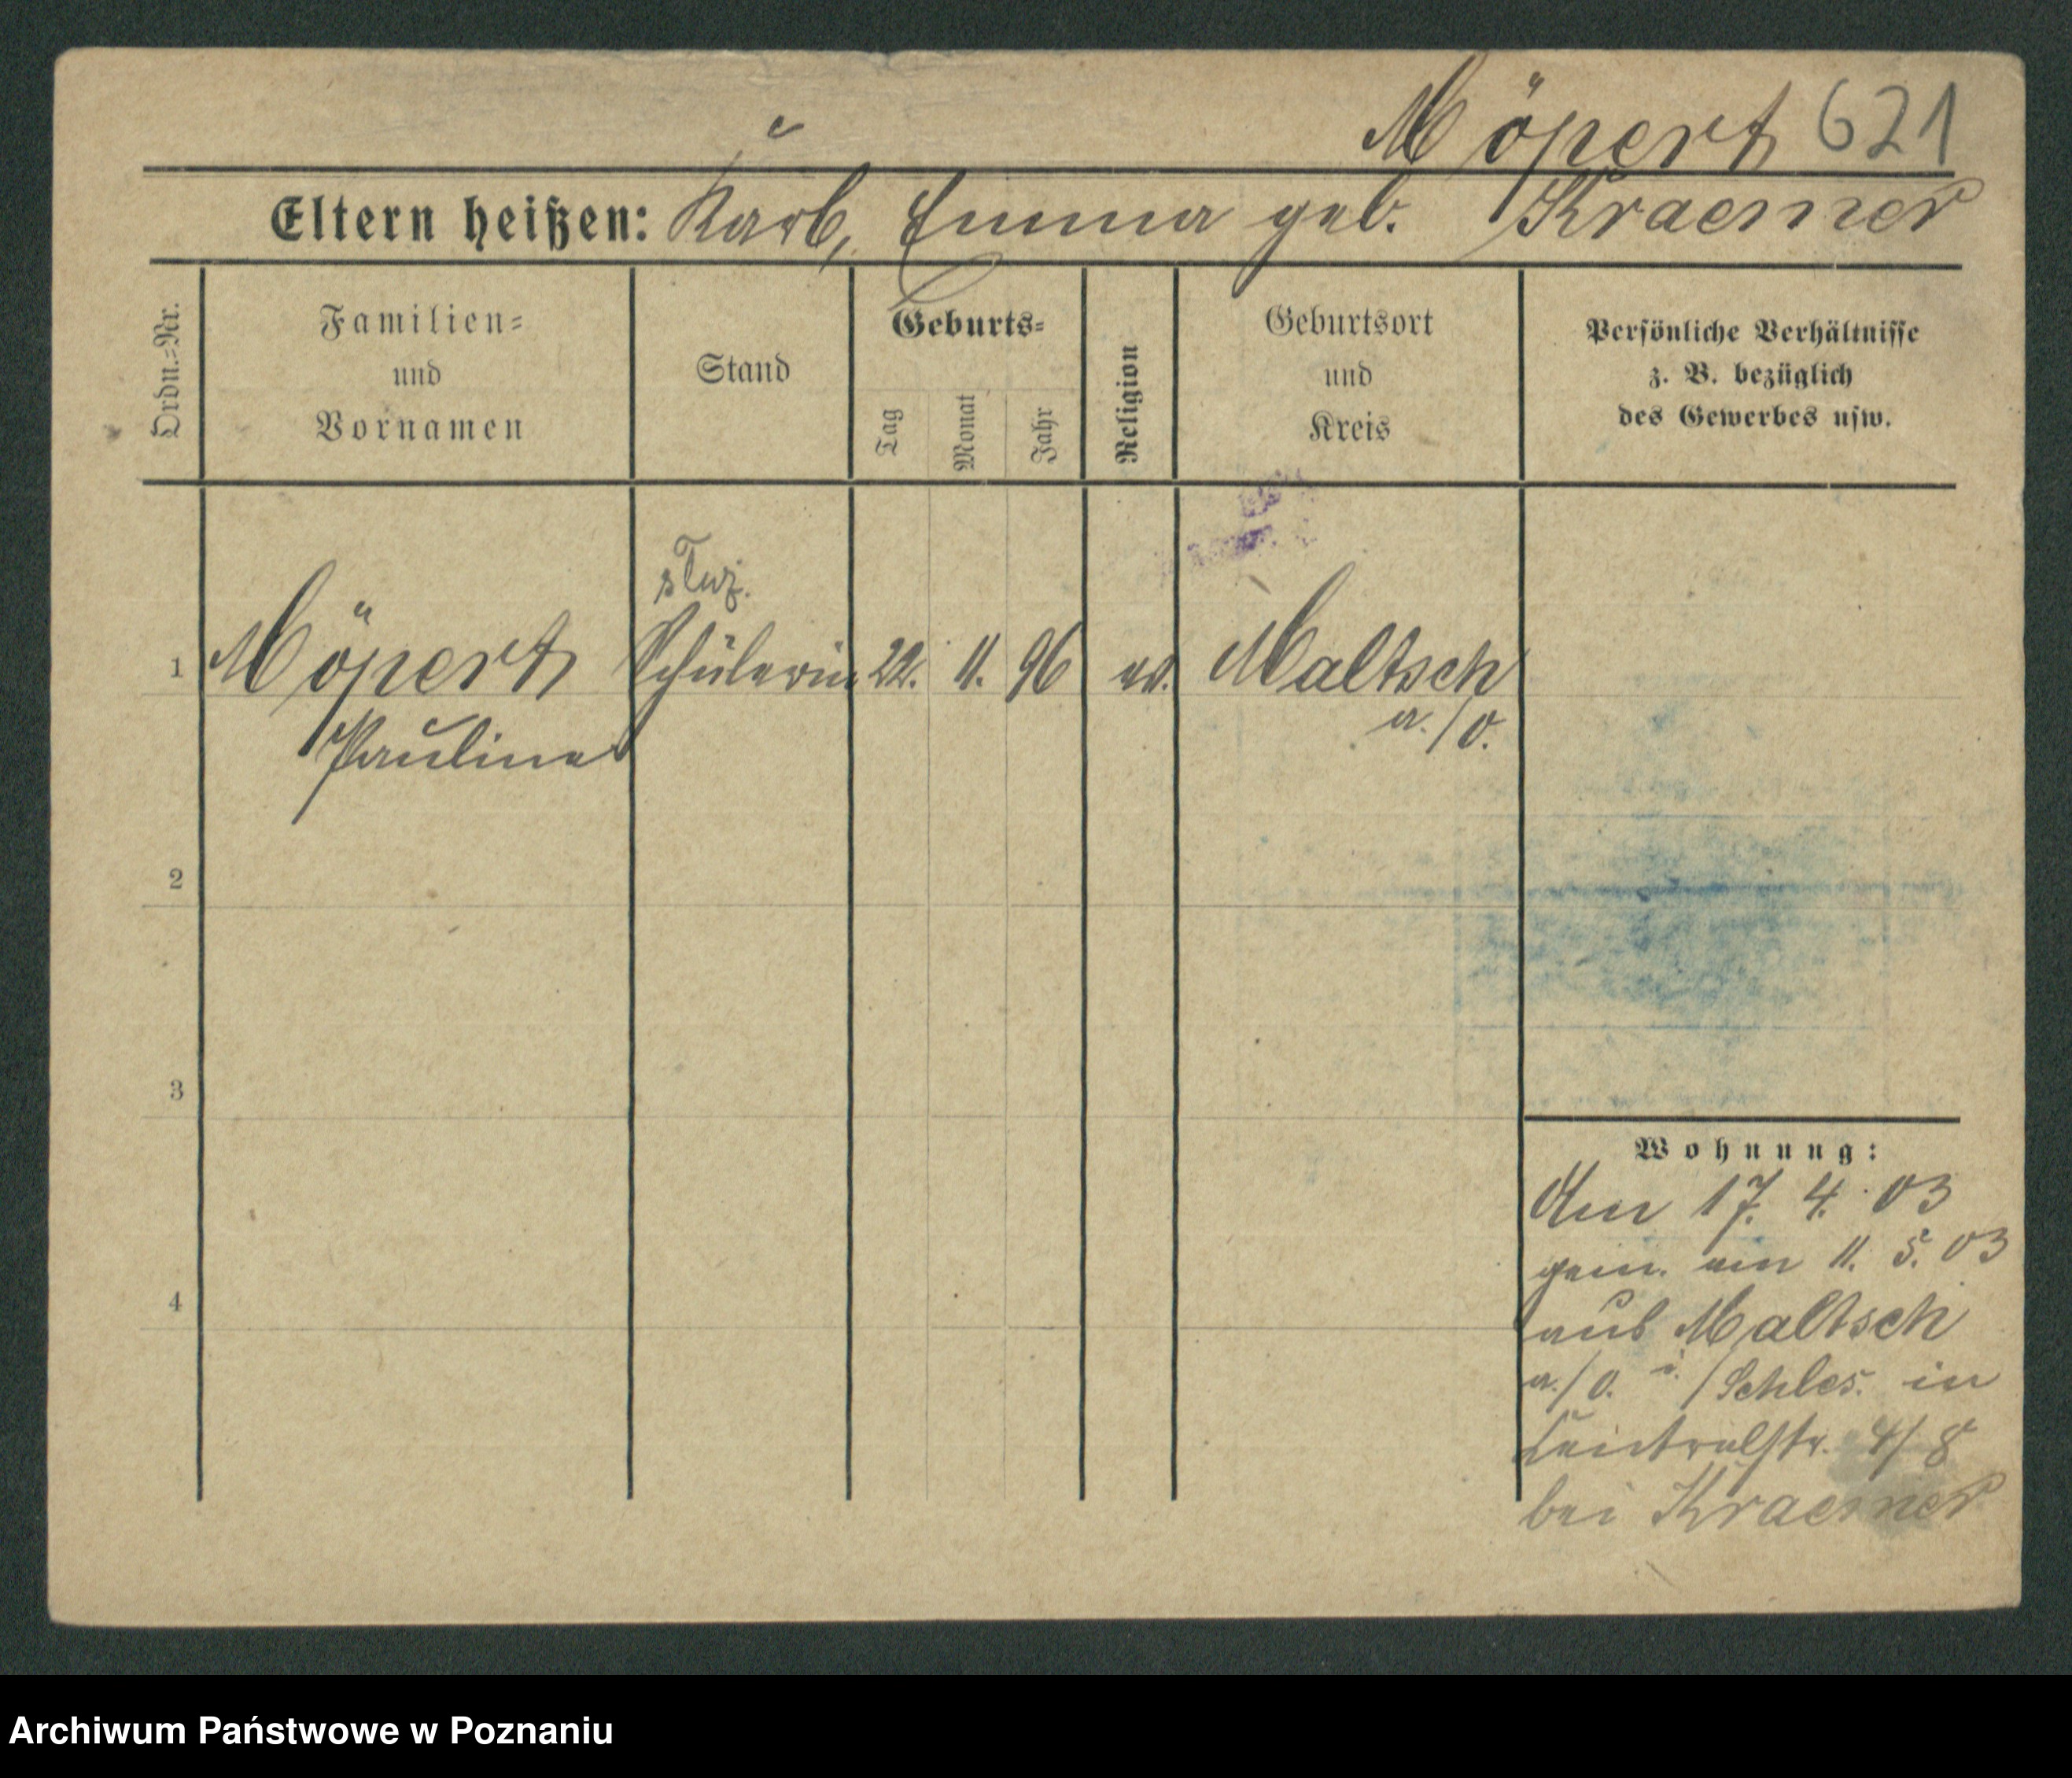 Möpert 621
Eltern heißen: Karl, Emma geb. Kraemer
Ordn.-Nr.
Familien-
und
Vornamen
Stand
Geburts-
Tag
Monat
Jahr
Religion
Geburtsort
und
Kreis
Persönliche Verhältnisse
z. B. bezüglich
des Gewerbes usw.
służ.
1 Möpert Schülerin 22. 11. 96 ev. Maltsch
Pauline a./O.
2
3
4
Wohnung:
Am 17. 4. 03
gem. am 11. 5. 03
aus Maltsch
a./O. i./Schles. in
4/8
bei Kraemer
Archiwum Państwowe w Poznaniu